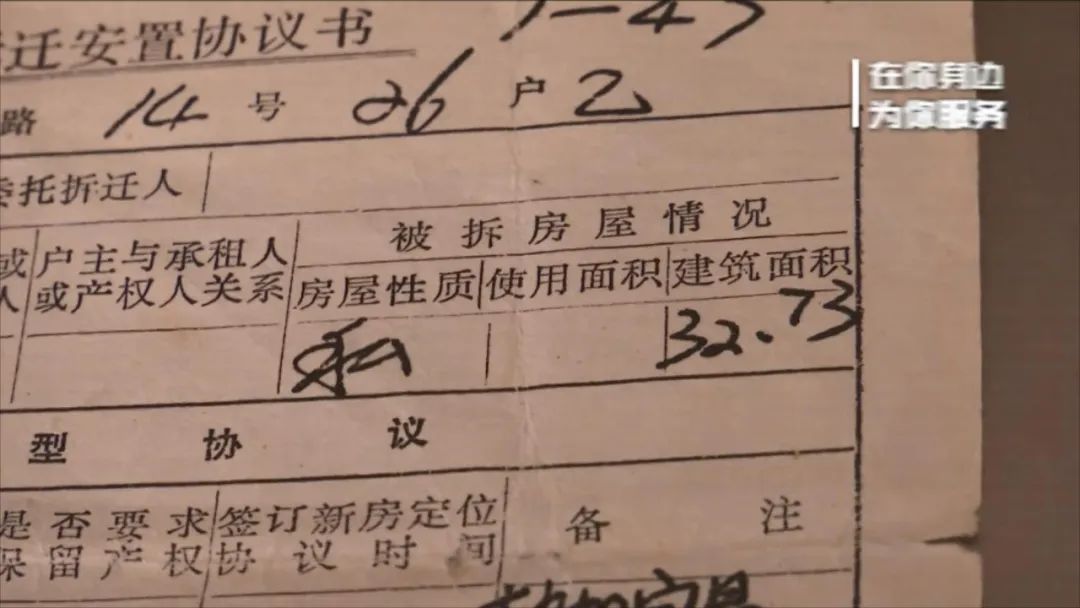 迁安置协议书
在你身边
为你服务
路 14 号 26 户 乙
托拆迁人
被拆房屋情况
或 户主与承租人 房屋性质 使用面积 建筑面积
人 或产权人关系
私 32.73
型协议
是否要求 签订新房定位 备注
保留产权 协议时间